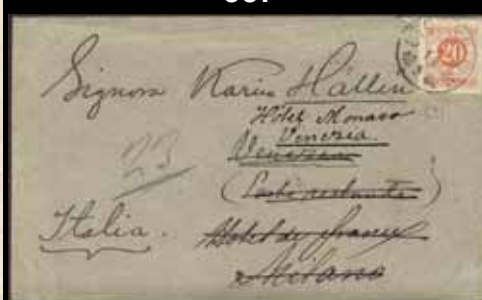 20
Signora Karin Hallin
Hôtel Monaco
Venezia.
Venezia
(Poste restante)
Italia. Hotel de France
Milano